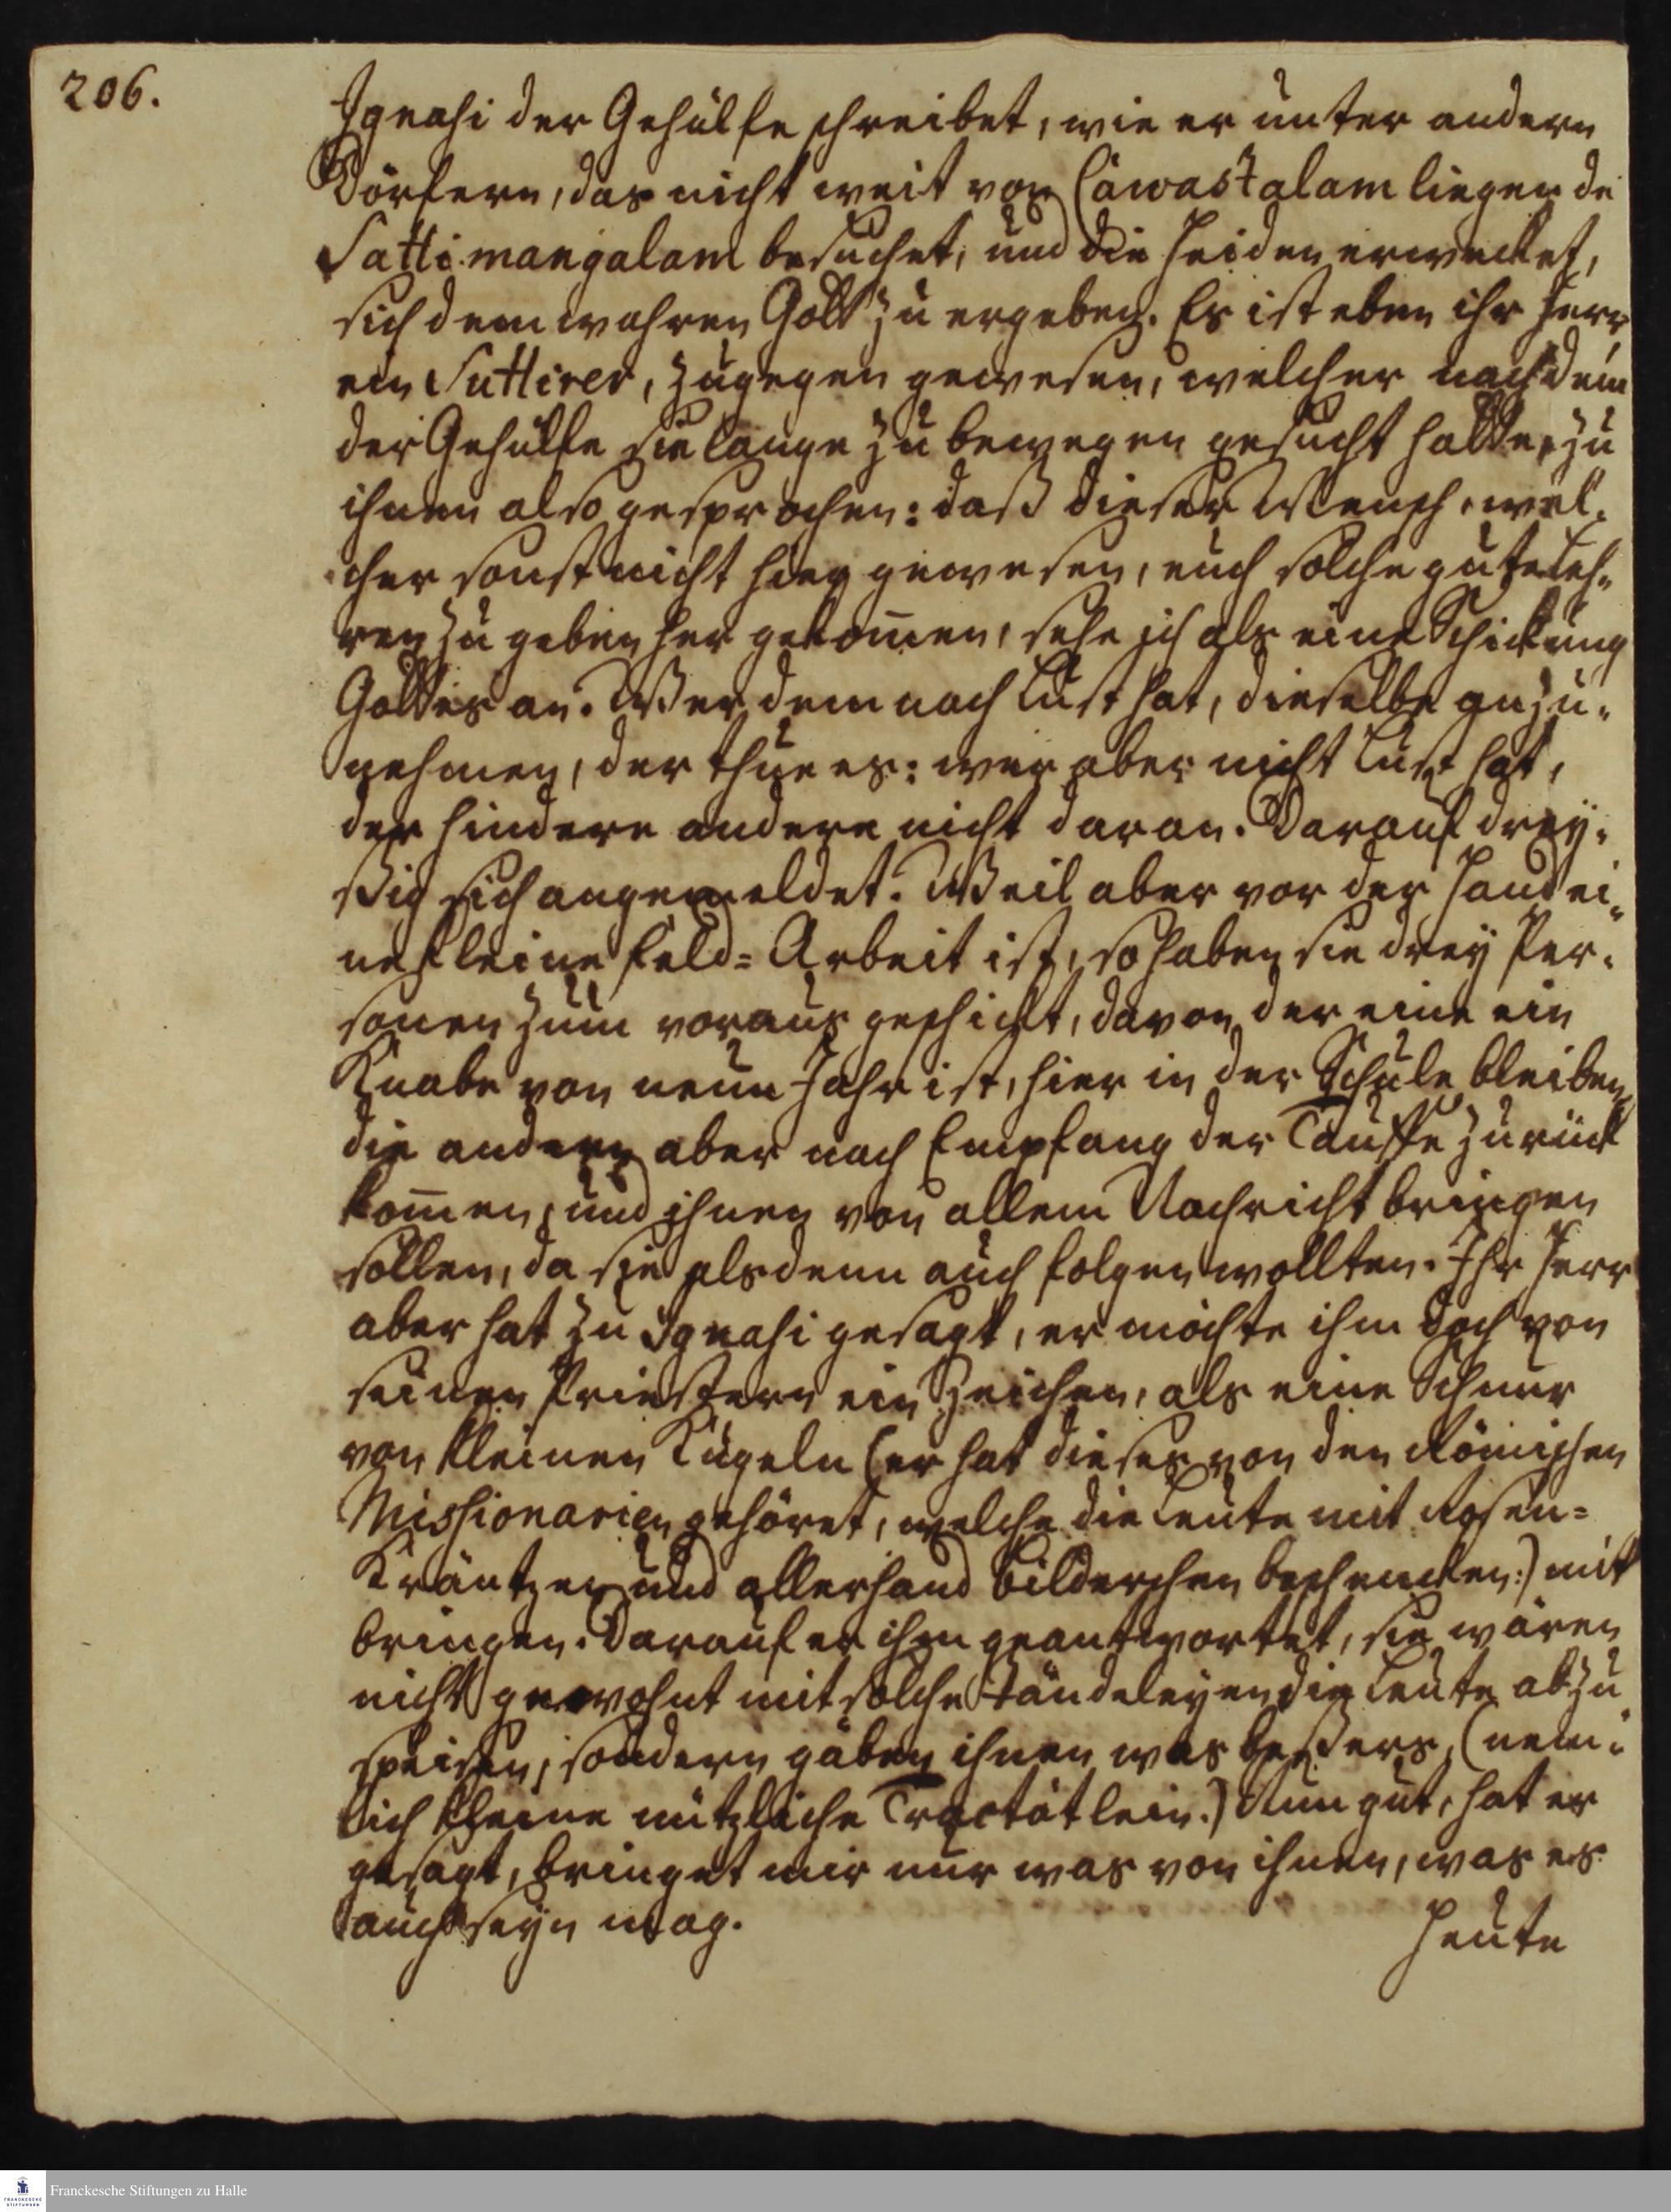 206.
Ignasi der Gehülfe schreibet, wie er unter andern
Dörfern, das nicht weit von Cawastalam liegende
Sattimangalam besuchet, und die Heiden erwecket,
sich dem wahren Gott zu ergeben. Es ist eben ihr Herr,
ein Suttirer, zugegen gewesen, welcher nachdem
der Gehülfe sie lange zu bewegen gesucht hatte, zu
ihnen also gesprochen: daß dieser Mensch, wel-
cher sonst nicht hier gewesen, euch solche gute Leh-
ren zu geben her gekom̄en, sehe ich als eine Schickung
Gottes an. Wer demnach Lust hat, dieselbe anzu-
nehmen, der thue es: wer aber nicht Lust hat,
der hindere andere nicht daran. Darauf drey-
ßig sich angemeldet. Weil aber vor der Hand ei-
ne kleine Feld-Arbeit ist, so haben sie drey Per-
sonen zum voraus geschickt, davon der eine ein
Knabe von neun Jahr ist, hier in der Schule bleiben,
die andern aber nach Empfang der Tauffe zurück
kom̄en, und ihnen von allem Nachricht bringen
sollen, da sie alsdenn auch folgen wollten. Ihr Herr
aber hat zu Ignasi gesagt, er möchte ihm doch von
seinen Priestern ein Zeichen, als eine Schnur
von kleinen Kugeln (er hat dieses von den Römischen
Missionarien gehöret, welche die Leute mit Rosen-
Kräntzen und allerhand Bilderchen beschencken:) mit
bringen. Darauf er ihm geantwortet, sie wären
nicht gewohnt mit solche Tändeleyen die Leute abzu
speisen, sondern gäben ihnen was beßers, (nem-
lich kleine nützliche Tractätlein.) Nun gut, hat er
gesagt, bringet mir nur was von ihnen, was es
auch seyn mag.
Heute
Franckesche Stiftungen zu Halle
FRANCKESCHE
STIFTUNGEN